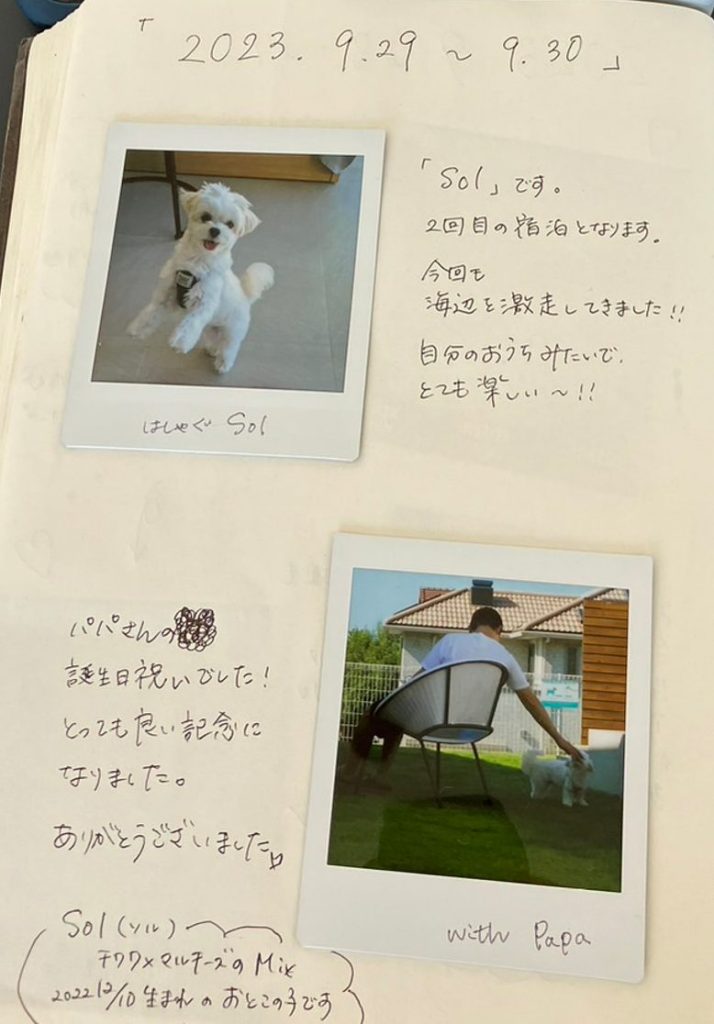 「2023. 9.29 ~ 9.30」
「Sol」です。
2回目の宿泊となります。
今回も
海辺を激走してきました!!
自分のおうちみたいで、
とても楽しい〜!!
はしゃぐ Sol
パパさんの
誕生日祝いでした!
とっても良い記念に
なりました。
ありがとうございました♡
with Papa
Sol(ソル)
チワワ×マルチーズのMix
2022 12/10 生まれのおとこの子です